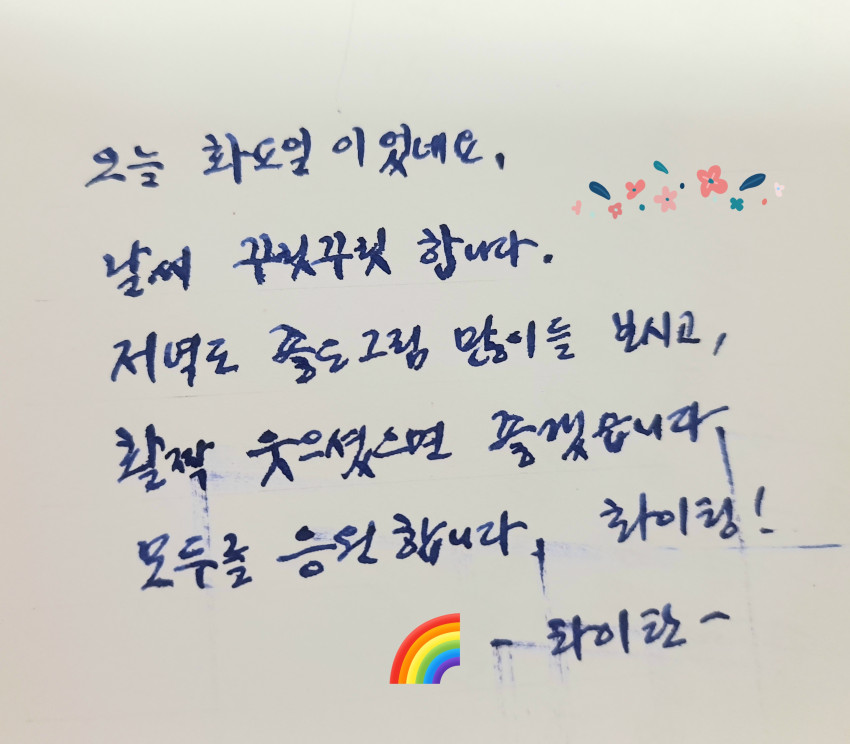 오늘 화요일 이었네요,
날씨 꾸릿꾸릿 합니다.
저녁도 풀도그림 많이들 보시고,
활짝 웃으셨으면 좋겠습니다,
모두를 응원 합니다, 화이팅!
- 화이란 -